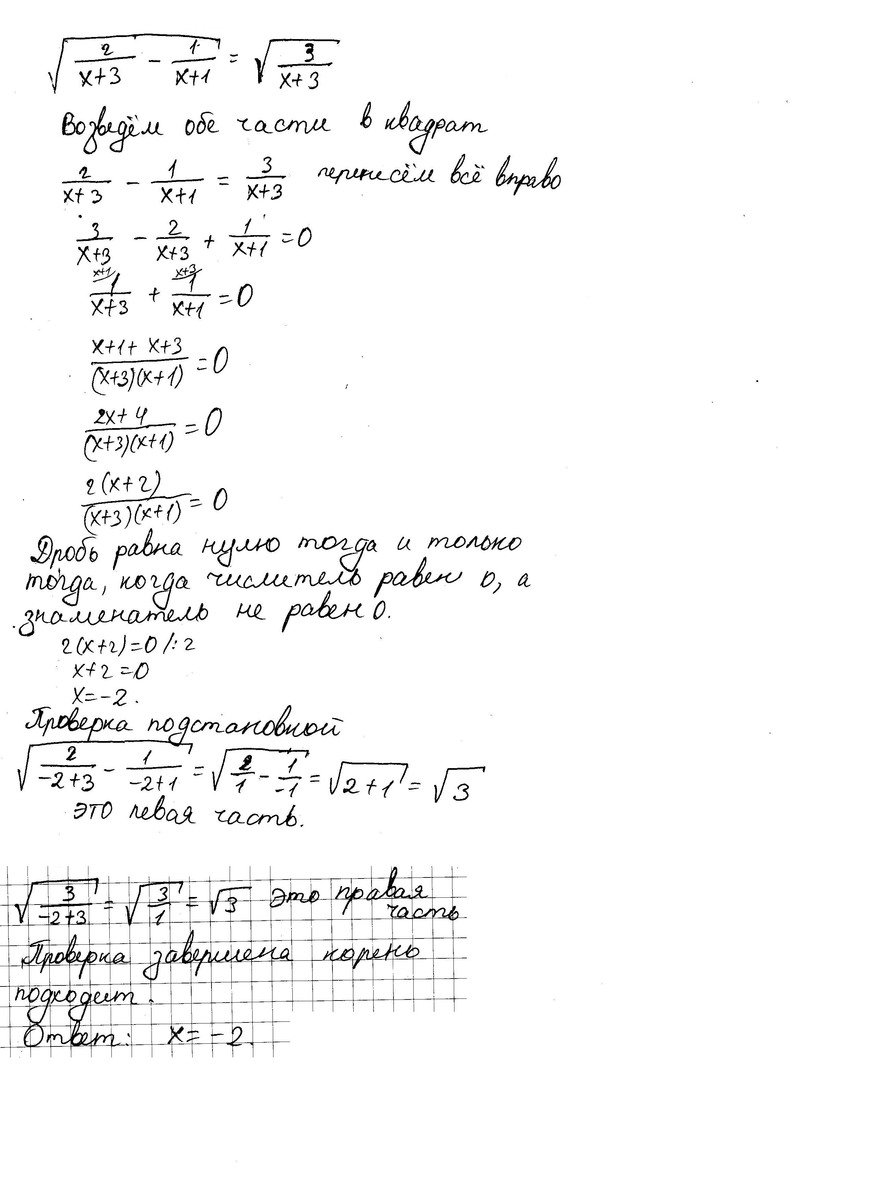 √(2/(x+3) - 1/(x+1)) = √(3/(x+3))
Возведём обе части в квадрат
2/(x+3) - 1/(x+1) = 3/(x+3) перенесём всё вправо
3/(x+3) - 2/(x+3) + 1/(x+1) = 0
x+1 x+3
1/(x+3) + 1/(x+1) = 0
(x+1+x+3)/((x+3)(x+1)) = 0
(2x+4)/((x+3)(x+1)) = 0
2(x+2)/((x+3)(x+1)) = 0
Дробь равна нулю тогда и только
тогда, когда числитель равен 0, а
знаменатель не равен 0.
2(x+2)=0 /:2
x+2=0
x=-2.
Проверка подстановкой
√(2/(-2+3) - 1/(-2+1)) = √(2/1 - 1/-1) = √(2+1) = √3
это левая часть.
√(3/(-2+3)) = √(3/1) = √3 это правая
часть
Проверка завершена корень
подходит.
Ответ: x=-2.